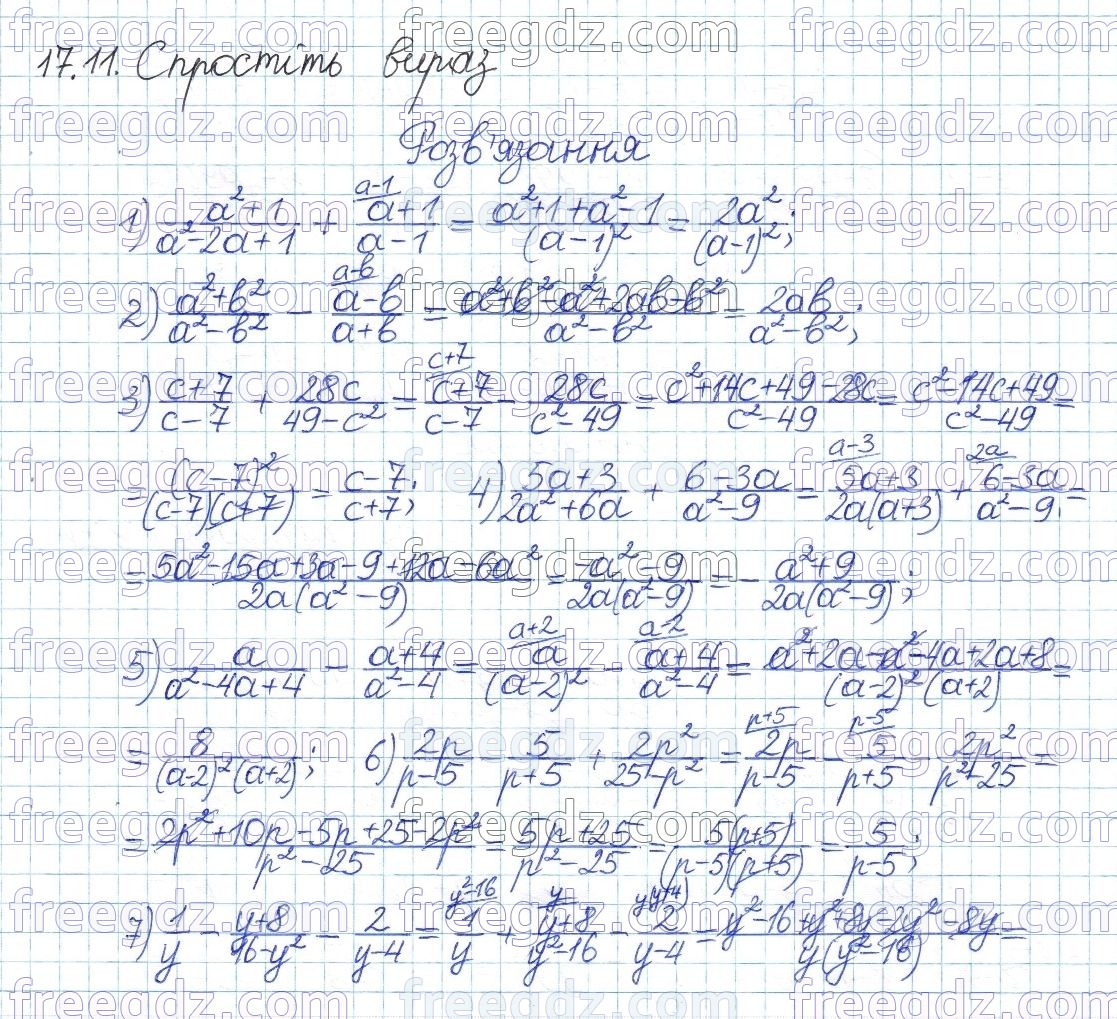 17.11. Спростіть вираз
Розв'язання
1) (a²+1)/(a²-2a+1) + (a+1)/(a-1) [a-1] = (a²+1+a²-1)/(a-1)² = 2a²/(a-1)²;
2) (a²+b²)/(a²-b²) - (a-b)/(a+b) [a-b] = (a²+b²-a²+2ab-b²)/(a²-b²) = 2ab/(a²-b²);
3) (c+7)/(c-7) + 28c/(49-c²) = (c+7)/(c-7) [c+7] - 28c/(c²-49) = (c²+14c+49-28c)/(c²-49) = (c²-14c+49)/(c²-49) =
= (c-7)²/((c-7)(c+7)) = (c-7)/(c+7); 4) (5a+3)/(2a²+6a) + (6-3a)/(a²-9) = (5a+3)/(2a(a+3)) [a-3] + (6-3a)/(a²-9) [2a] =
= (5a²-15a+3a-9+12a-6a²)/(2a(a²-9)) = (-a²-9)/(2a(a²-9)) = - (a²+9)/(2a(a²-9));
5) a/(a²-4a+4) - (a+4)/(a²-4) = a/(a-2)² [a+2] - (a+4)/(a²-4) [a-2] = (a²+2a-a²-4a+2a+8)/((a-2)²(a+2)) =
= 8/((a-2)²(a+2)); 6) 2p/(p-5) - 5/(p+5) + 2p²/(25-p²) = 2p/(p-5) [p+5] - 5/(p+5) [p-5] - 2p²/(p²-25) =
= (2p²+10p-5p+25-2p²)/(p²-25) = (5p+25)/(p²-25) = 5(p+5)/((p-5)(p+5)) = 5/(p-5);
7) 1/y - (y+8)/(16-y²) - 2/(y-4) = 1/y [y²-16] + (y+8)/(y²-16) [y] - 2/(y-4) [y(y+4)] = (y²-16+y²+8y-2y²-8y)/(y(y²-16)) =
freegdz.com